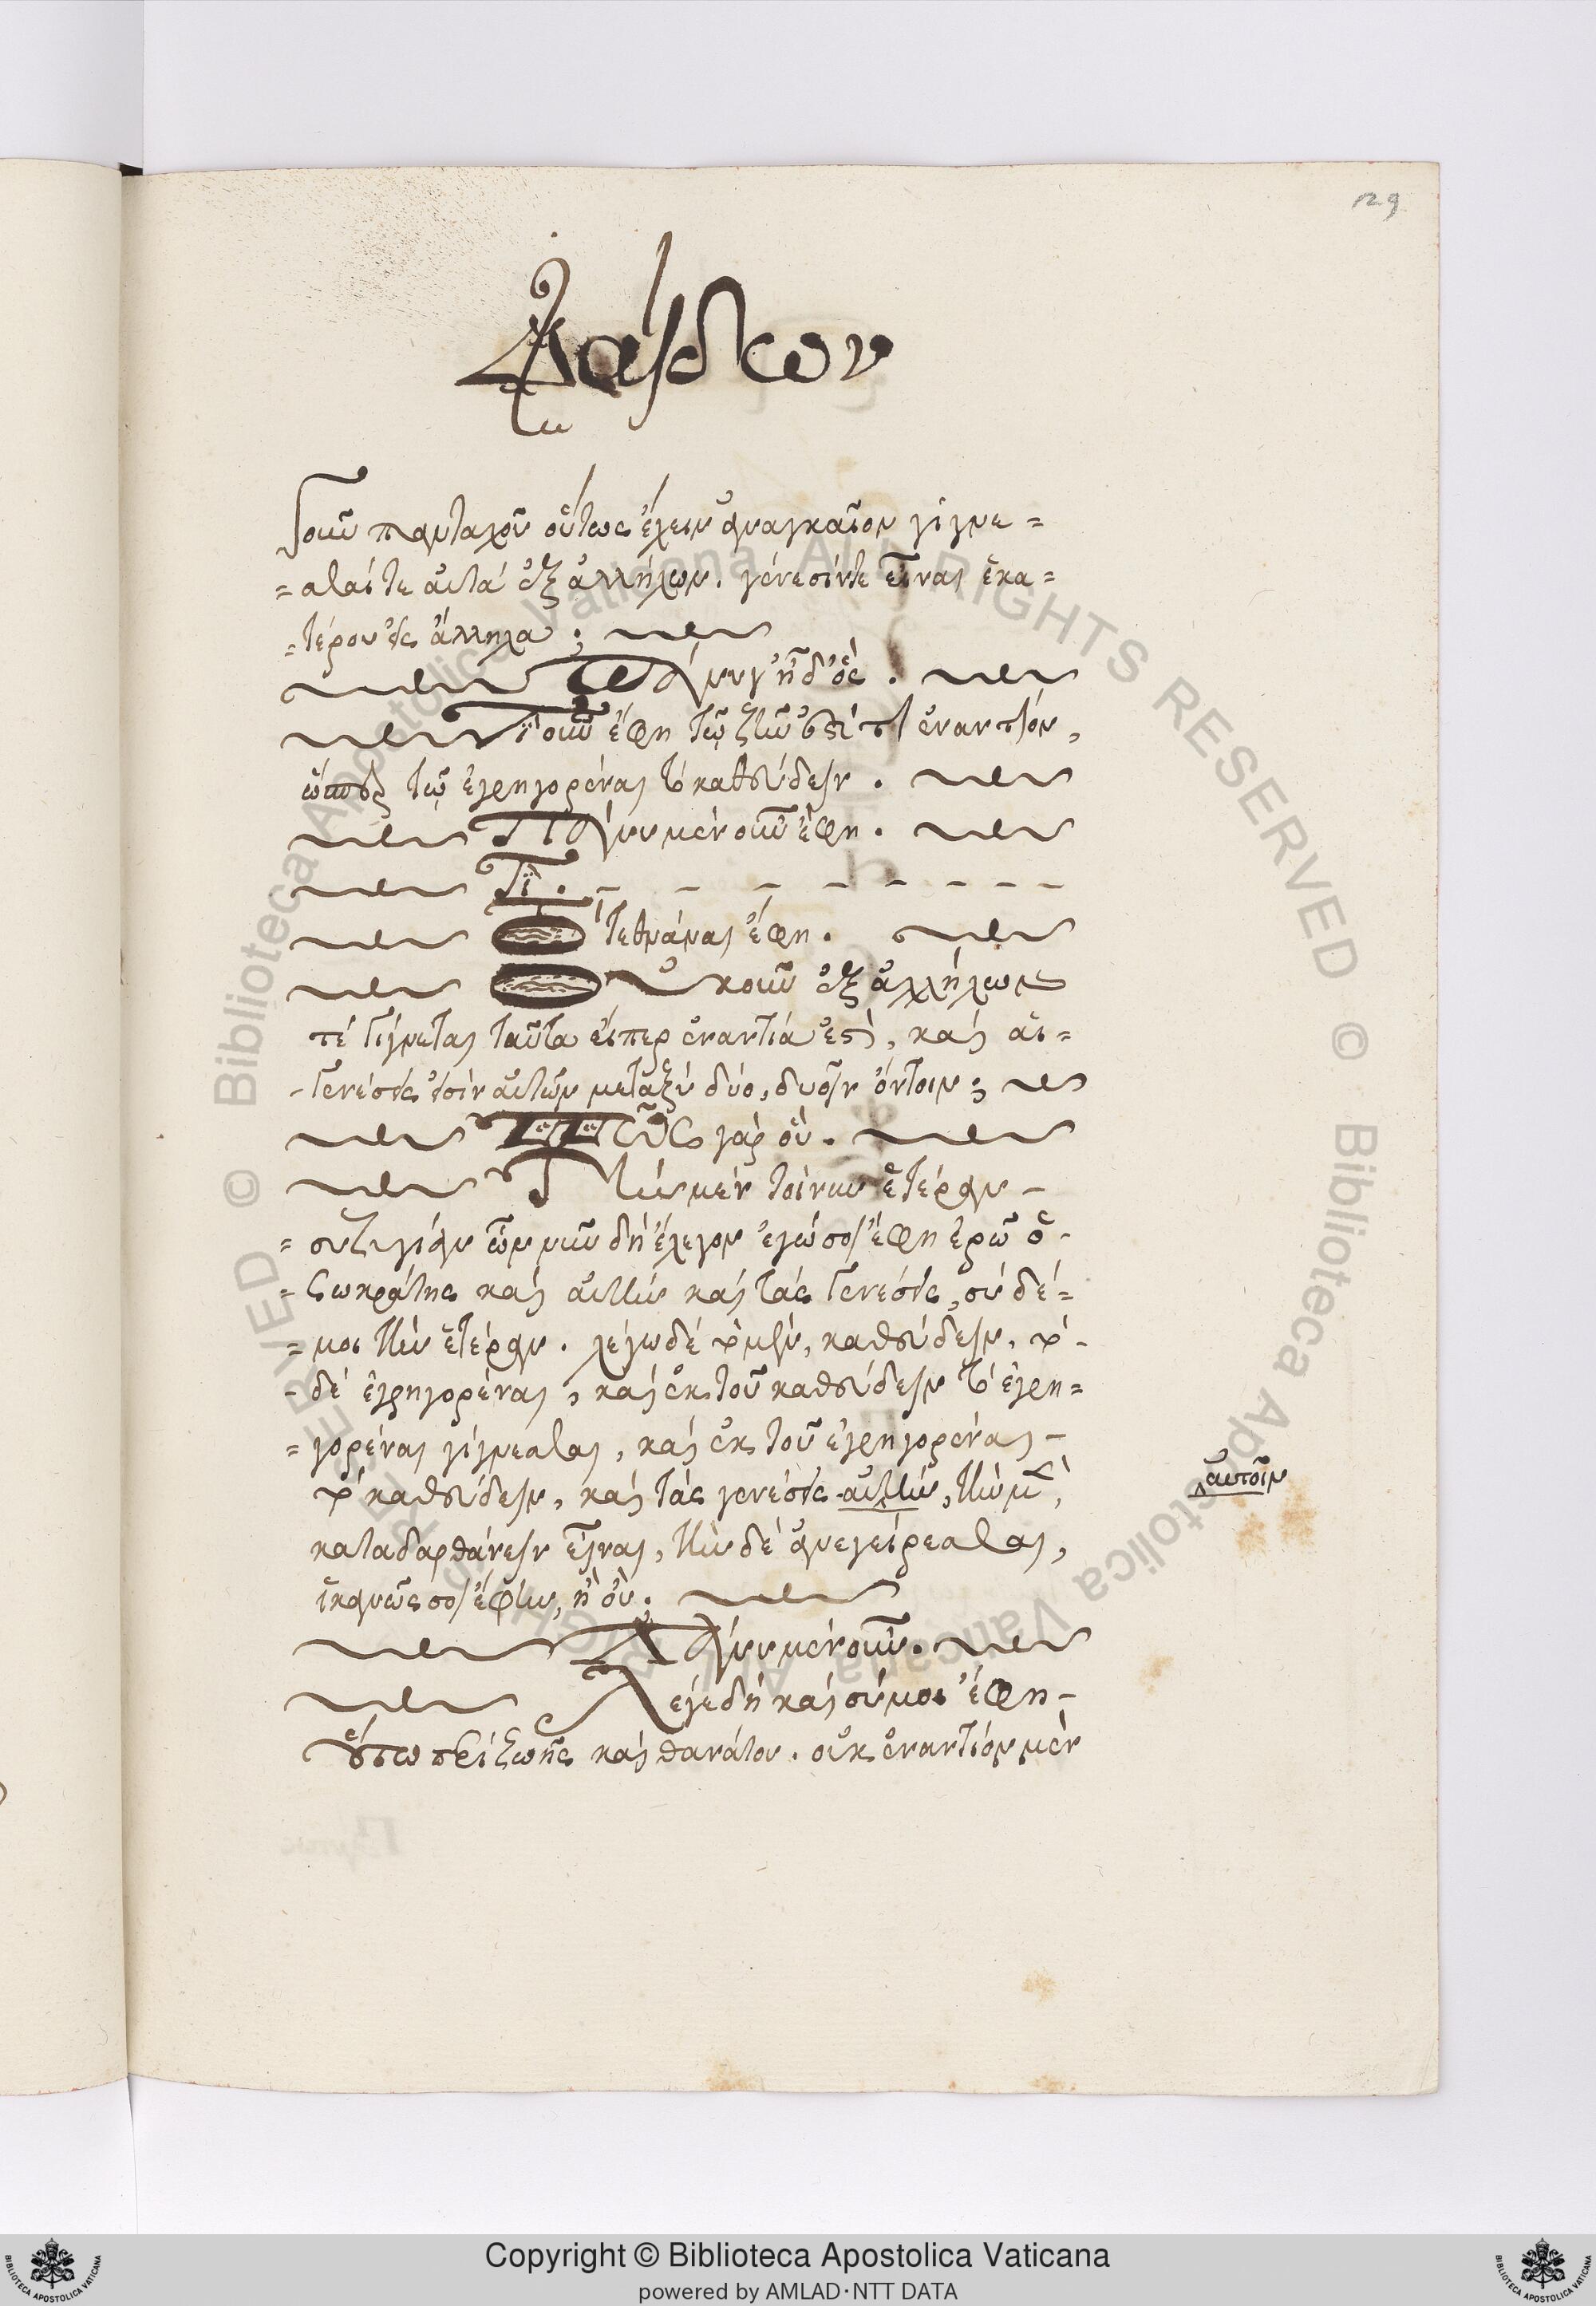 129
Φαίδων
γοῦν πανταχοῦ οὕτως ἔχειν ἀναγκαῖον γίγνε=
=σθαί τε αὐτὰ ἐξ ἀλλήλων. γένεσίν τε εἶναι ἑκα=
=τέρου εἰς ἄλληλα;
Πάνυ γ' ἦ δ' ὅς.
Τί οὖν ἔφη τῷ ζῆν ἐστί τι ἐναντίον,
ὥσπερ τῷ ἐγρηγορέναι τὸ καθεύδειν.
Πάνυ μὲν οὖν ἔφη.
Τί.
Τεθνάναι ἔφη.
Οὐκοῦν ἐξ ἀλλήλων
τέ γίγνεται ταῦτα εἴπερ ἐναντία ἐστὶ, καὶ αἱ=
-γενέσεις εἰσὶν αὐτῶν μεταξὺ δύο, δυοῖν ὄντοιν;
Πῶς γὰρ οὔ.
Τὴν μὲν τοίνυν ἑτέραν-
=συζυγίαν ὧν νῦν δὴ ἔλεγον ἐγώ σοι ἔφη ἐρῶ ὁ-
=Σωκράτης καὶ αὐτὴν καὶ τὰς γενέσεις, σὺ δέ=
=μοι τὴν ἑτέραν. λέγω δὲ τὸ μὲν, καθεύδειν, τὸ-
-δὲ ἐγρηγορέναι, καὶ ἐκ τοῦ καθεύδειν τὸ ἐγρη=
=γορέναι γίγνεσθαι, καὶ ἐκ τοῦ ἐγρηγορέναι-
τὸ καθεύδειν, καὶ τὰς γενέσεις αὐτὴν, τὴν μὲν,
αὐτοῖν
καταδαρθάνειν εἶναι, τὴν δὲ ἀνεγείρεσθαι,
ἱκανῶς σοι ἔφην, ἢ οὔ;
Πάνυ μὲν οὖν.
Λέγε δὴ καὶ σύ μοι ἔφη-
οὕτω περὶ ζωῆς καὶ θανάτου. οὐκ ἐναντίον μὲν
Copyright © Biblioteca Apostolica Vaticana
powered by AMLAD·NTT DATA